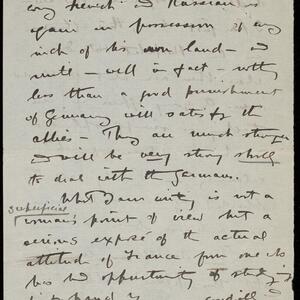 every French & Russian is
again in possession of any
inch of his own land — &
until — well in fact — nothing
less than a good punishment
of Germany will satisfy the
allies — They are much stronger
& will be very strong still
to deal with the Germans.
What I am writing is not a
superficial
woman's point of view but a
serious exposé of the actual
attitude of France from one who
has had opportunity of studying
it